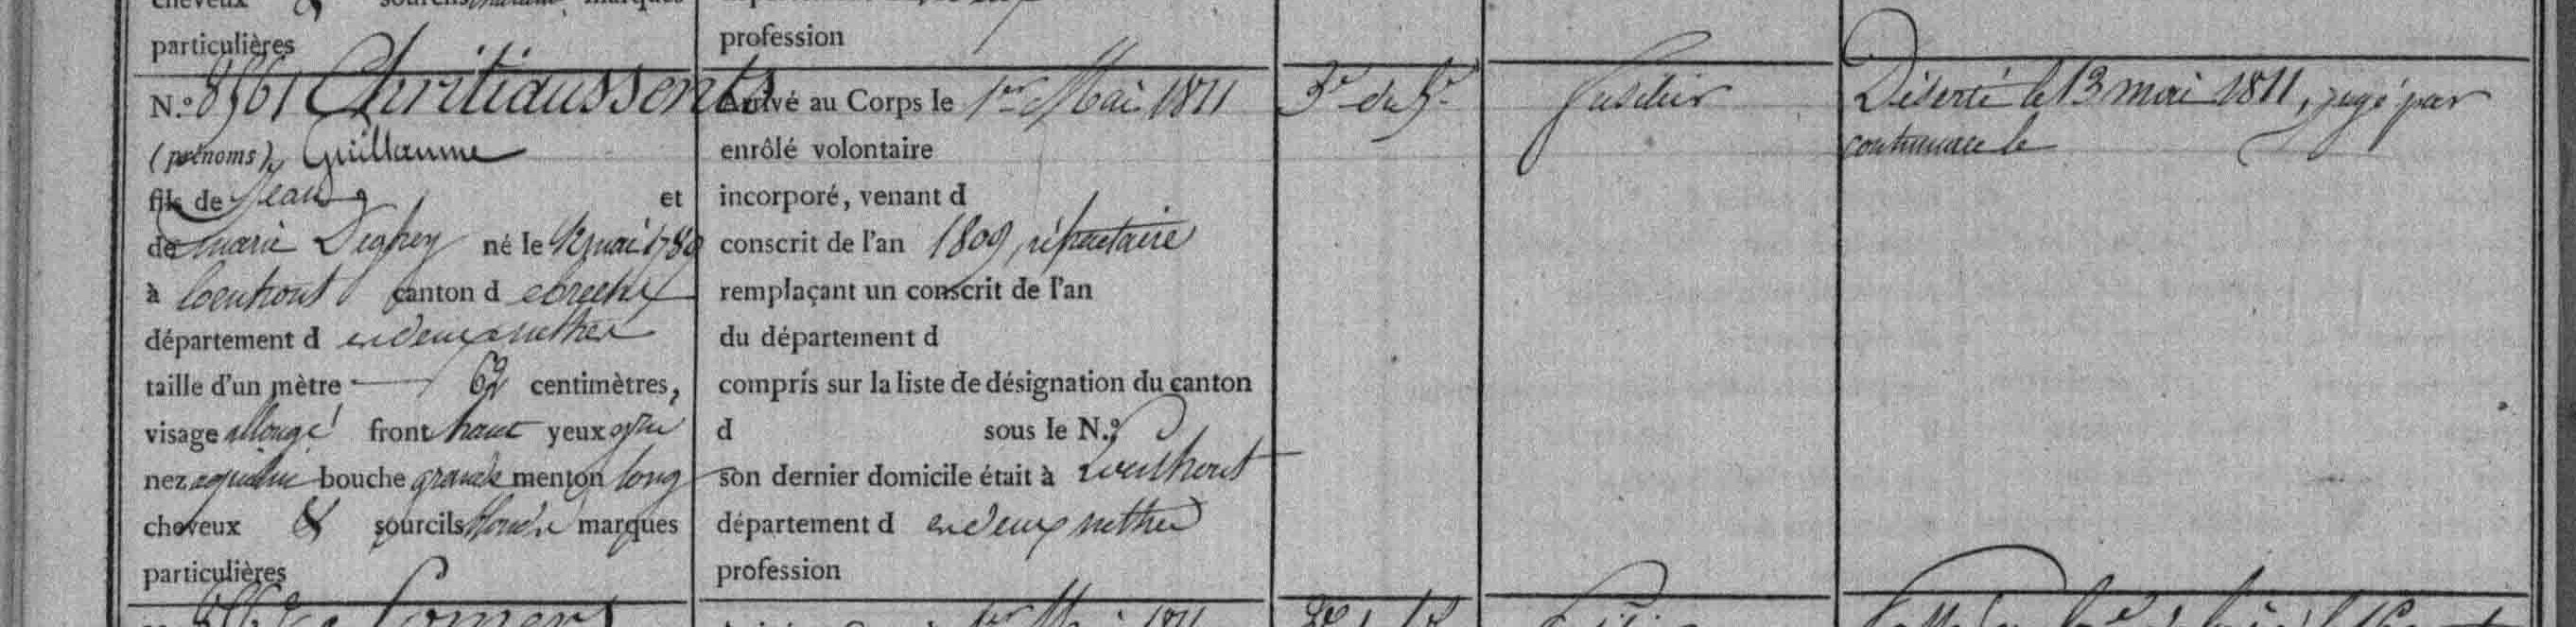 particulières
profession
N.º 8561 Chritiaussents
(prénoms) Guillaume
fils de Jean et
de marie né le 12 mai 1789
à Loenhout canton d
département d en deux nethes
taille d'un mètre 62 centimètres,
visage allongé front haut yeux gris
nez aquilin bouche grande menton long
cheveux & sourcils blonds marques
particulières
Arrivé au Corps le 1er Mai 1811
enrôlé volontaire
incorporé, venant d
conscrit de l'an 1809, réfractaire
remplaçant un conscrit de l'an
du département d
compris sur la liste de désignation du canton
d sous le N.º
son dernier domicile était à Loenhout
département d en deux nethes
profession
3e du 5e
fusilier
Déserté le 13 mai 1811, jugé par
contumace le